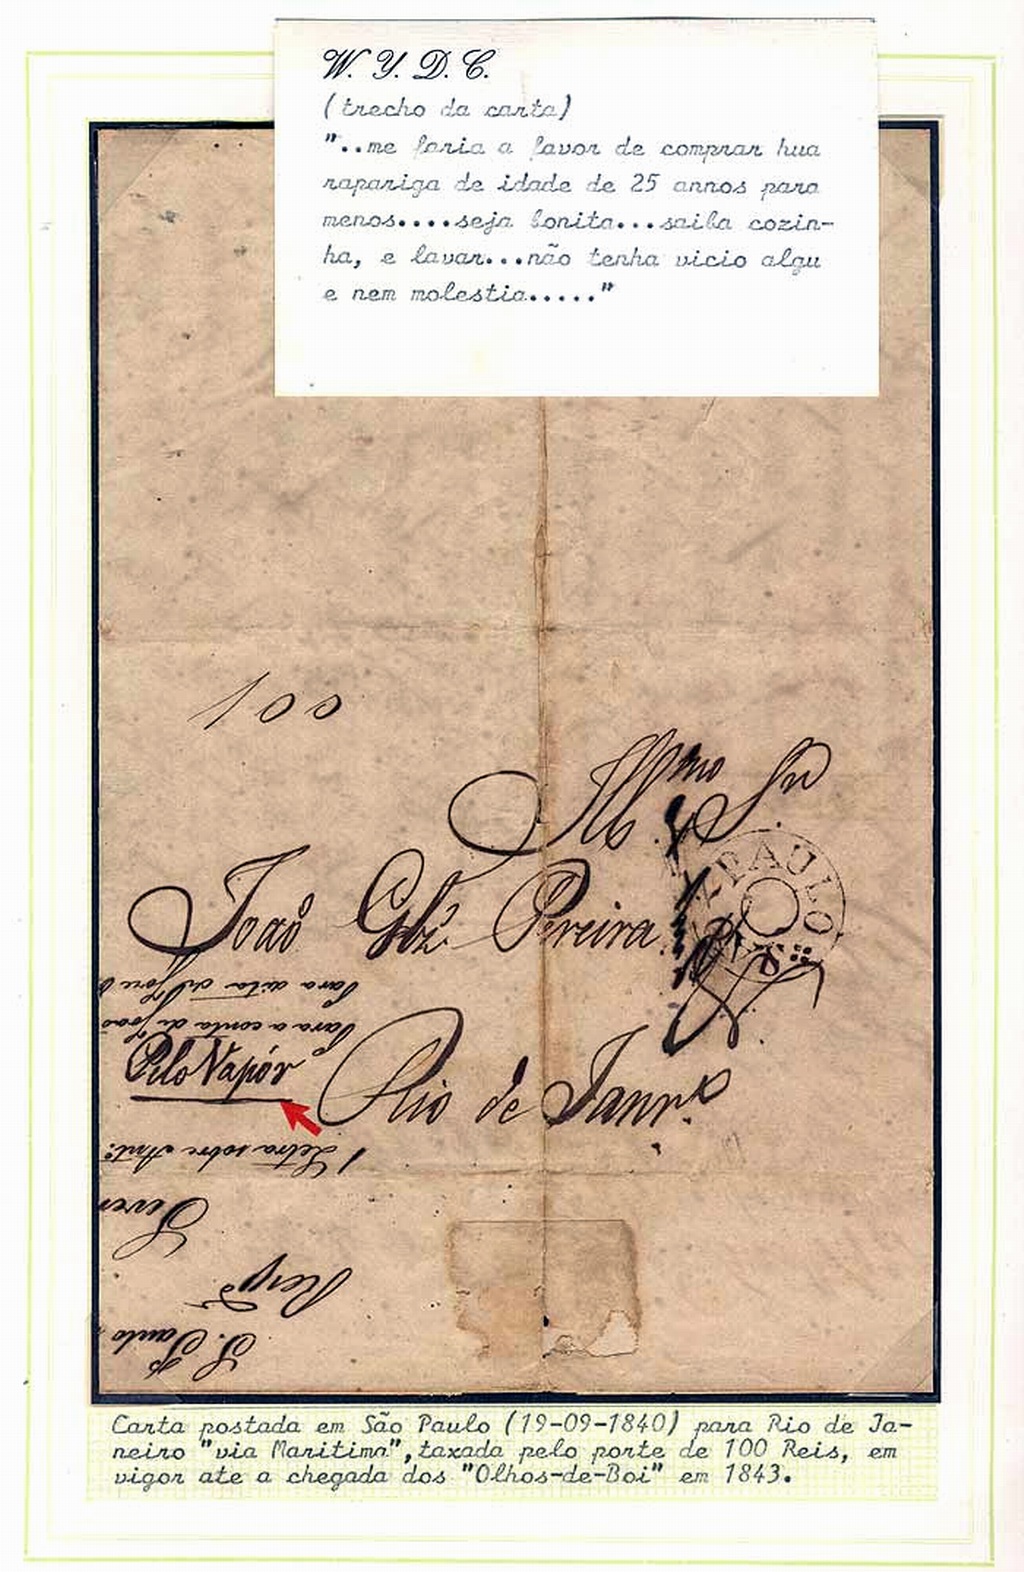 W. Y. D. C.
(trecho da carta)
"..me faria a favor de comprar hua
rapariga de idade de 25 annos para
menos....seja bonita...saiba cozin-
ha, e lavar...não tenha vicio algu
e nem molestia....."
100
Illmo Snr
S. PAULO
João Glz Pereira
Para a conta de João
Pelo Vapór
Rio de Janro
1 Letra sobre Anto
S. Paulo
Carta postada em São Paulo (19-09-1840) para Rio de Ja-
neiro "via Maritima", taxada pelo porte de 100 Reis, em
vigor ate a chegada dos "Olhos-de-Boi" em 1843.